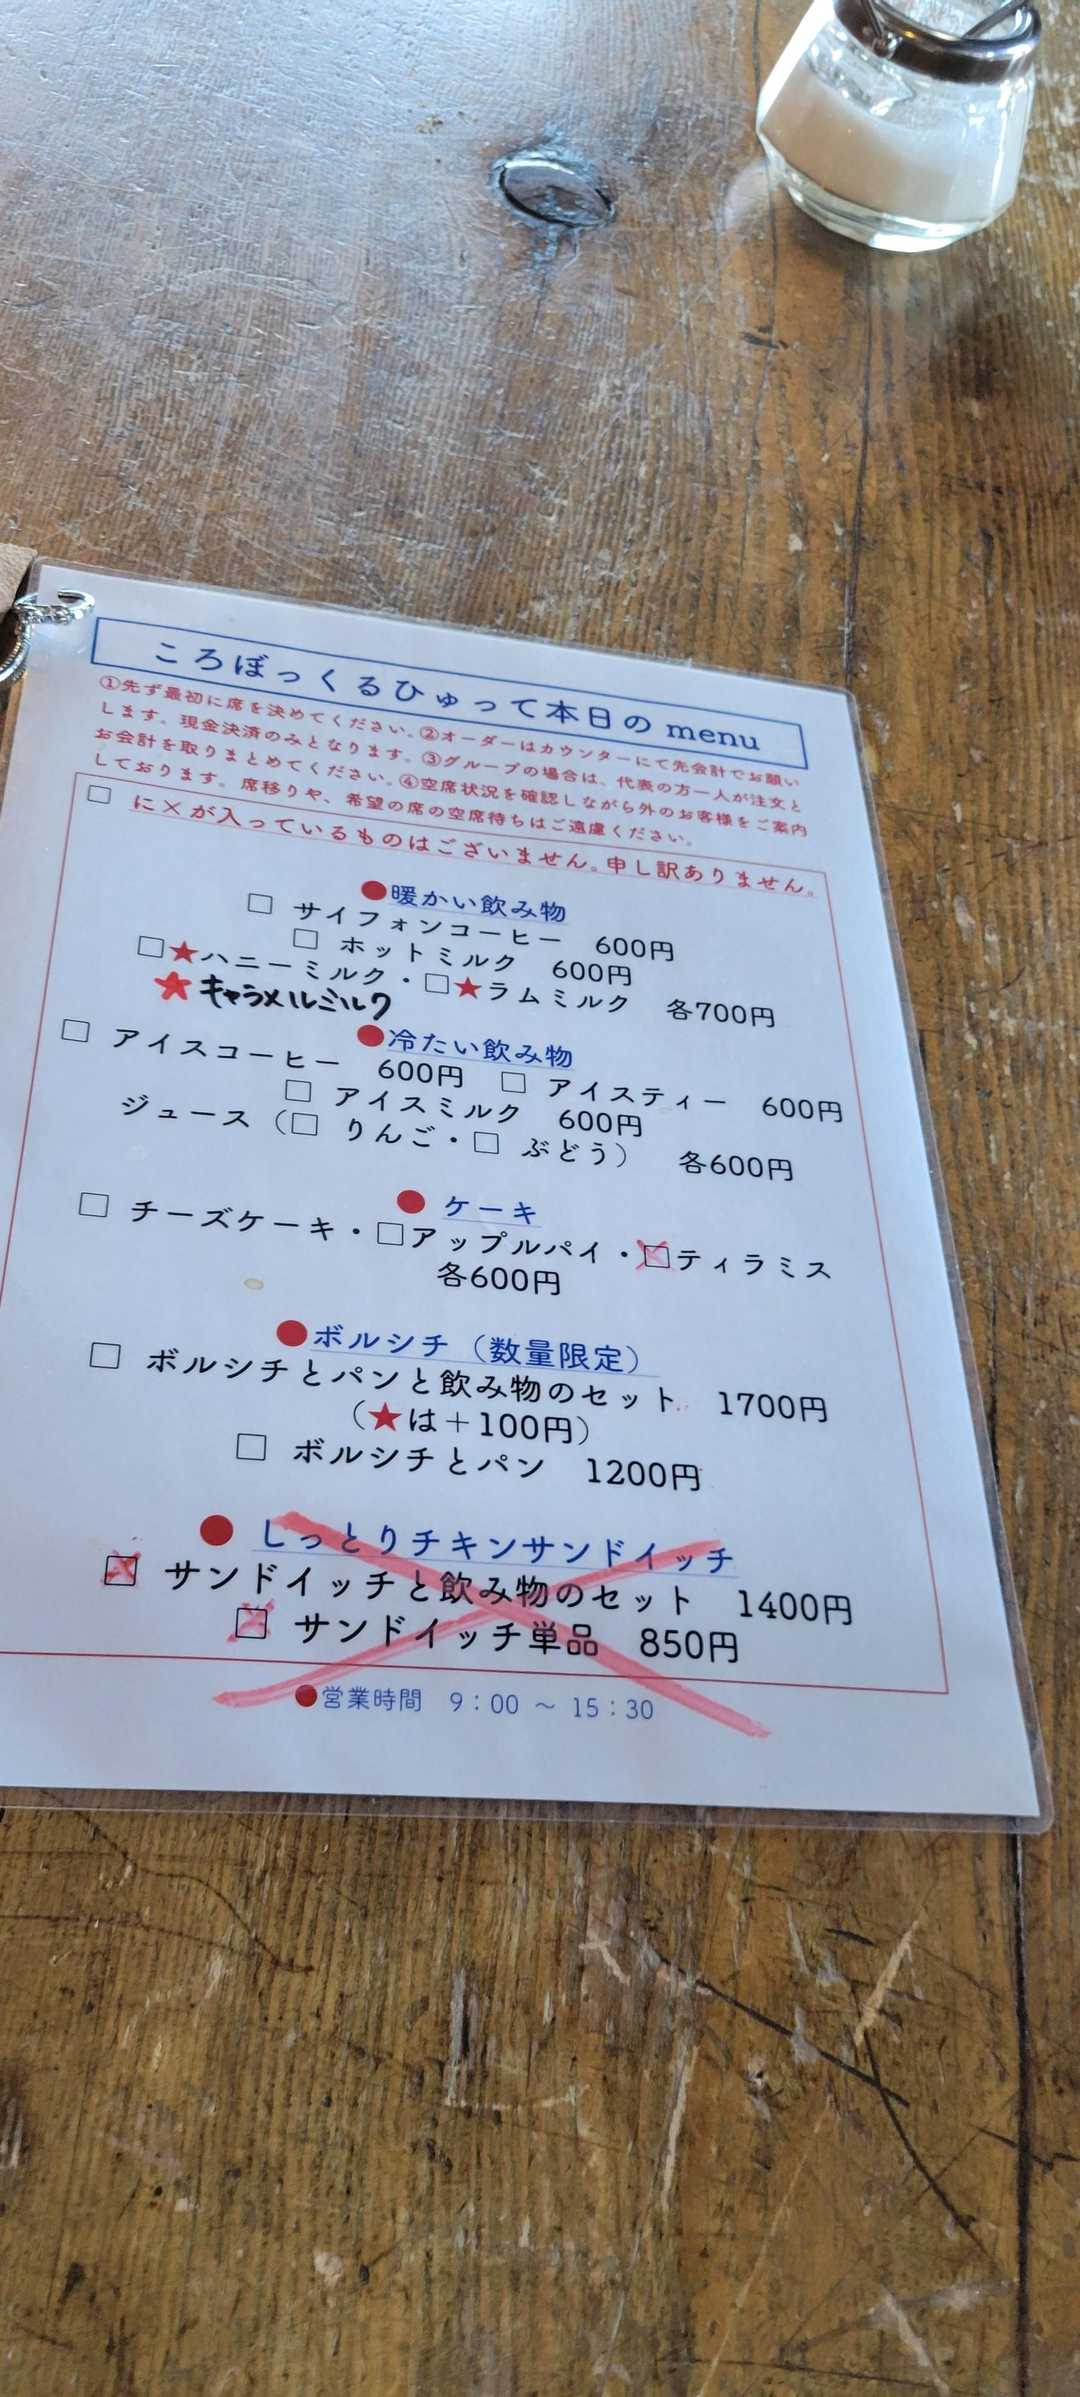 ころぼっくるひゅって本日の menu
①先ず最初に席を決めてください。②オーダーはカウンターにて先会計でお願い
します。現金決済のみとなります。③グループの場合は、代表の方一人が注文と
お会計を取りまとめてください。④空席状況を確認しながら外のお客様をご案内
しております。席移りや、希望の席の空席待ちはご遠慮ください。
□ に×が入っているものはございません。申し訳ありません。
●暖かい飲み物
□ サイフォンコーヒー 600円
□ ホットミルク 600円
□★ハニーミルク・□★ラムミルク 各700円
★キャラメルミルク
●冷たい飲み物
□ アイスコーヒー 600円 □ アイスティー 600円
□ アイスミルク 600円
ジュース（□ りんご・□ ぶどう） 各600円
● ケーキ
□ チーズケーキ・□アップルパイ・□ティラミス
各600円
●ボルシチ（数量限定）
□ ボルシチとパンと飲み物のセット 1700円
（★は＋100円）
□ ボルシチとパン 1200円
● しっとりチキンサンドイッチ
□ サンドイッチと飲み物のセット 1400円
□ サンドイッチ単品 850円
●営業時間 9：00 ～ 15：30